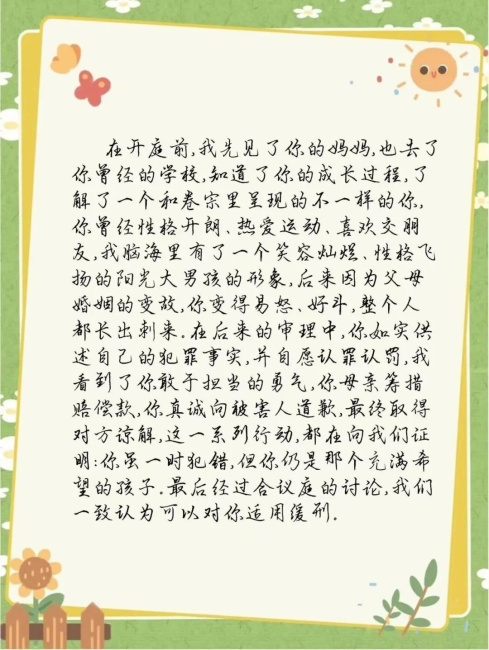 在开庭前,我先见了你的妈妈,也去了
你曾经的学校,知道了你的成长过程,了
解了一个和卷宗里呈现的不一样的你,
你曾经性格开朗、热爱运动、喜欢交朋
友,我脑海里有了一个笑容灿烂、性格飞
扬的阳光大男孩的形象,后来因为父母
婚姻的变故,你变得易怒、好斗,整个人
都长出刺来.在后来的审理中,你如实供
述自己的犯罪事实,并自愿认罪认罚,我
看到了你敢于担当的勇气,你母亲筹措
赔偿款,你真诚向被害人道歉,最终取得
对方谅解,这一系列行动,都在向我们证
明:你虽一时犯错,但你仍是那个充满希
望的孩子.最后经过合议庭的讨论,我们
一致认为可以对你适用缓刑.